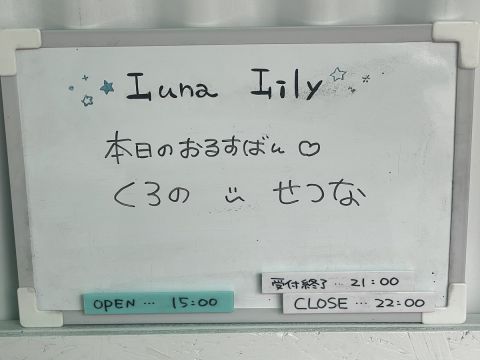 Luna Lily
本日のおるすばん♡
くろの ఒ せつな
受付終了…21:00
OPEN…15:00
CLOSE…22:00